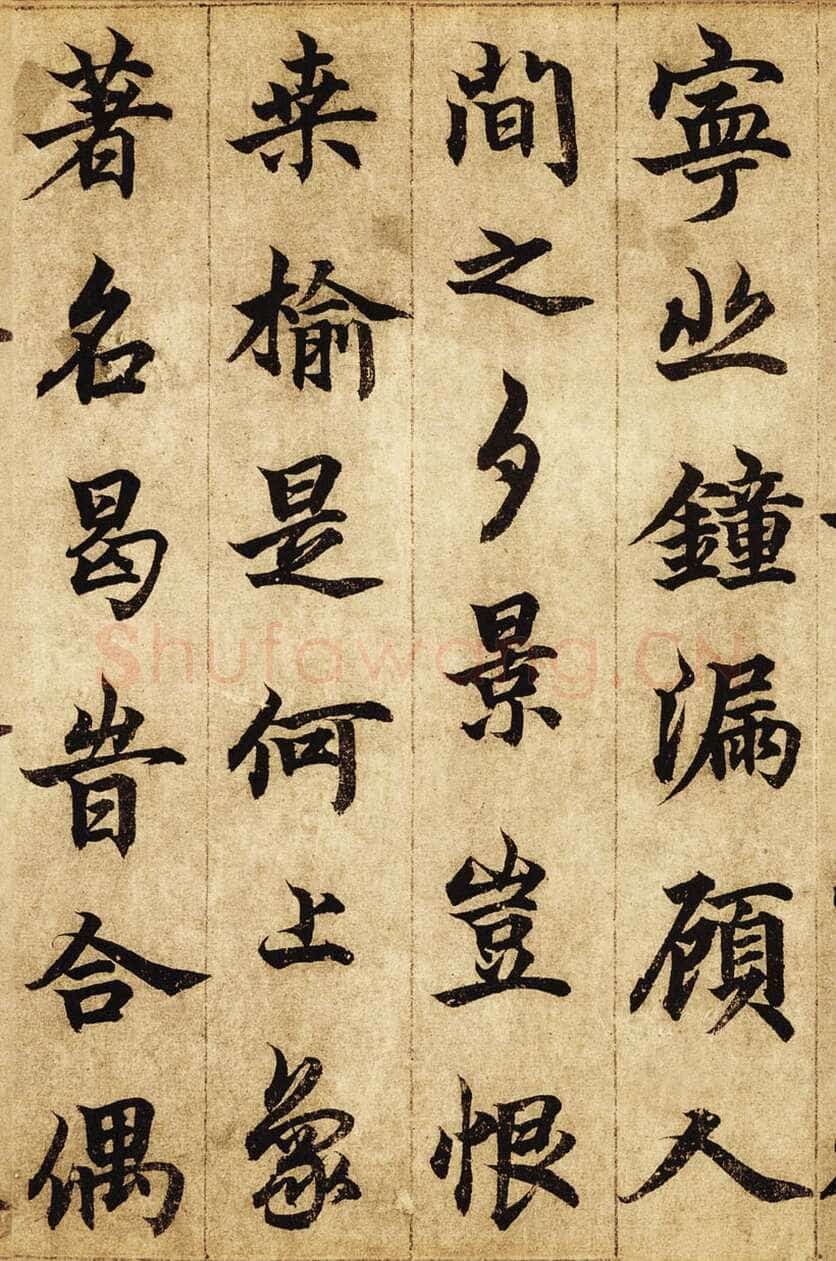 寧鐘漏頋人
間之夕景豈恨
桒榆是何上象
著名曷旹合偶
Shufawang.CN